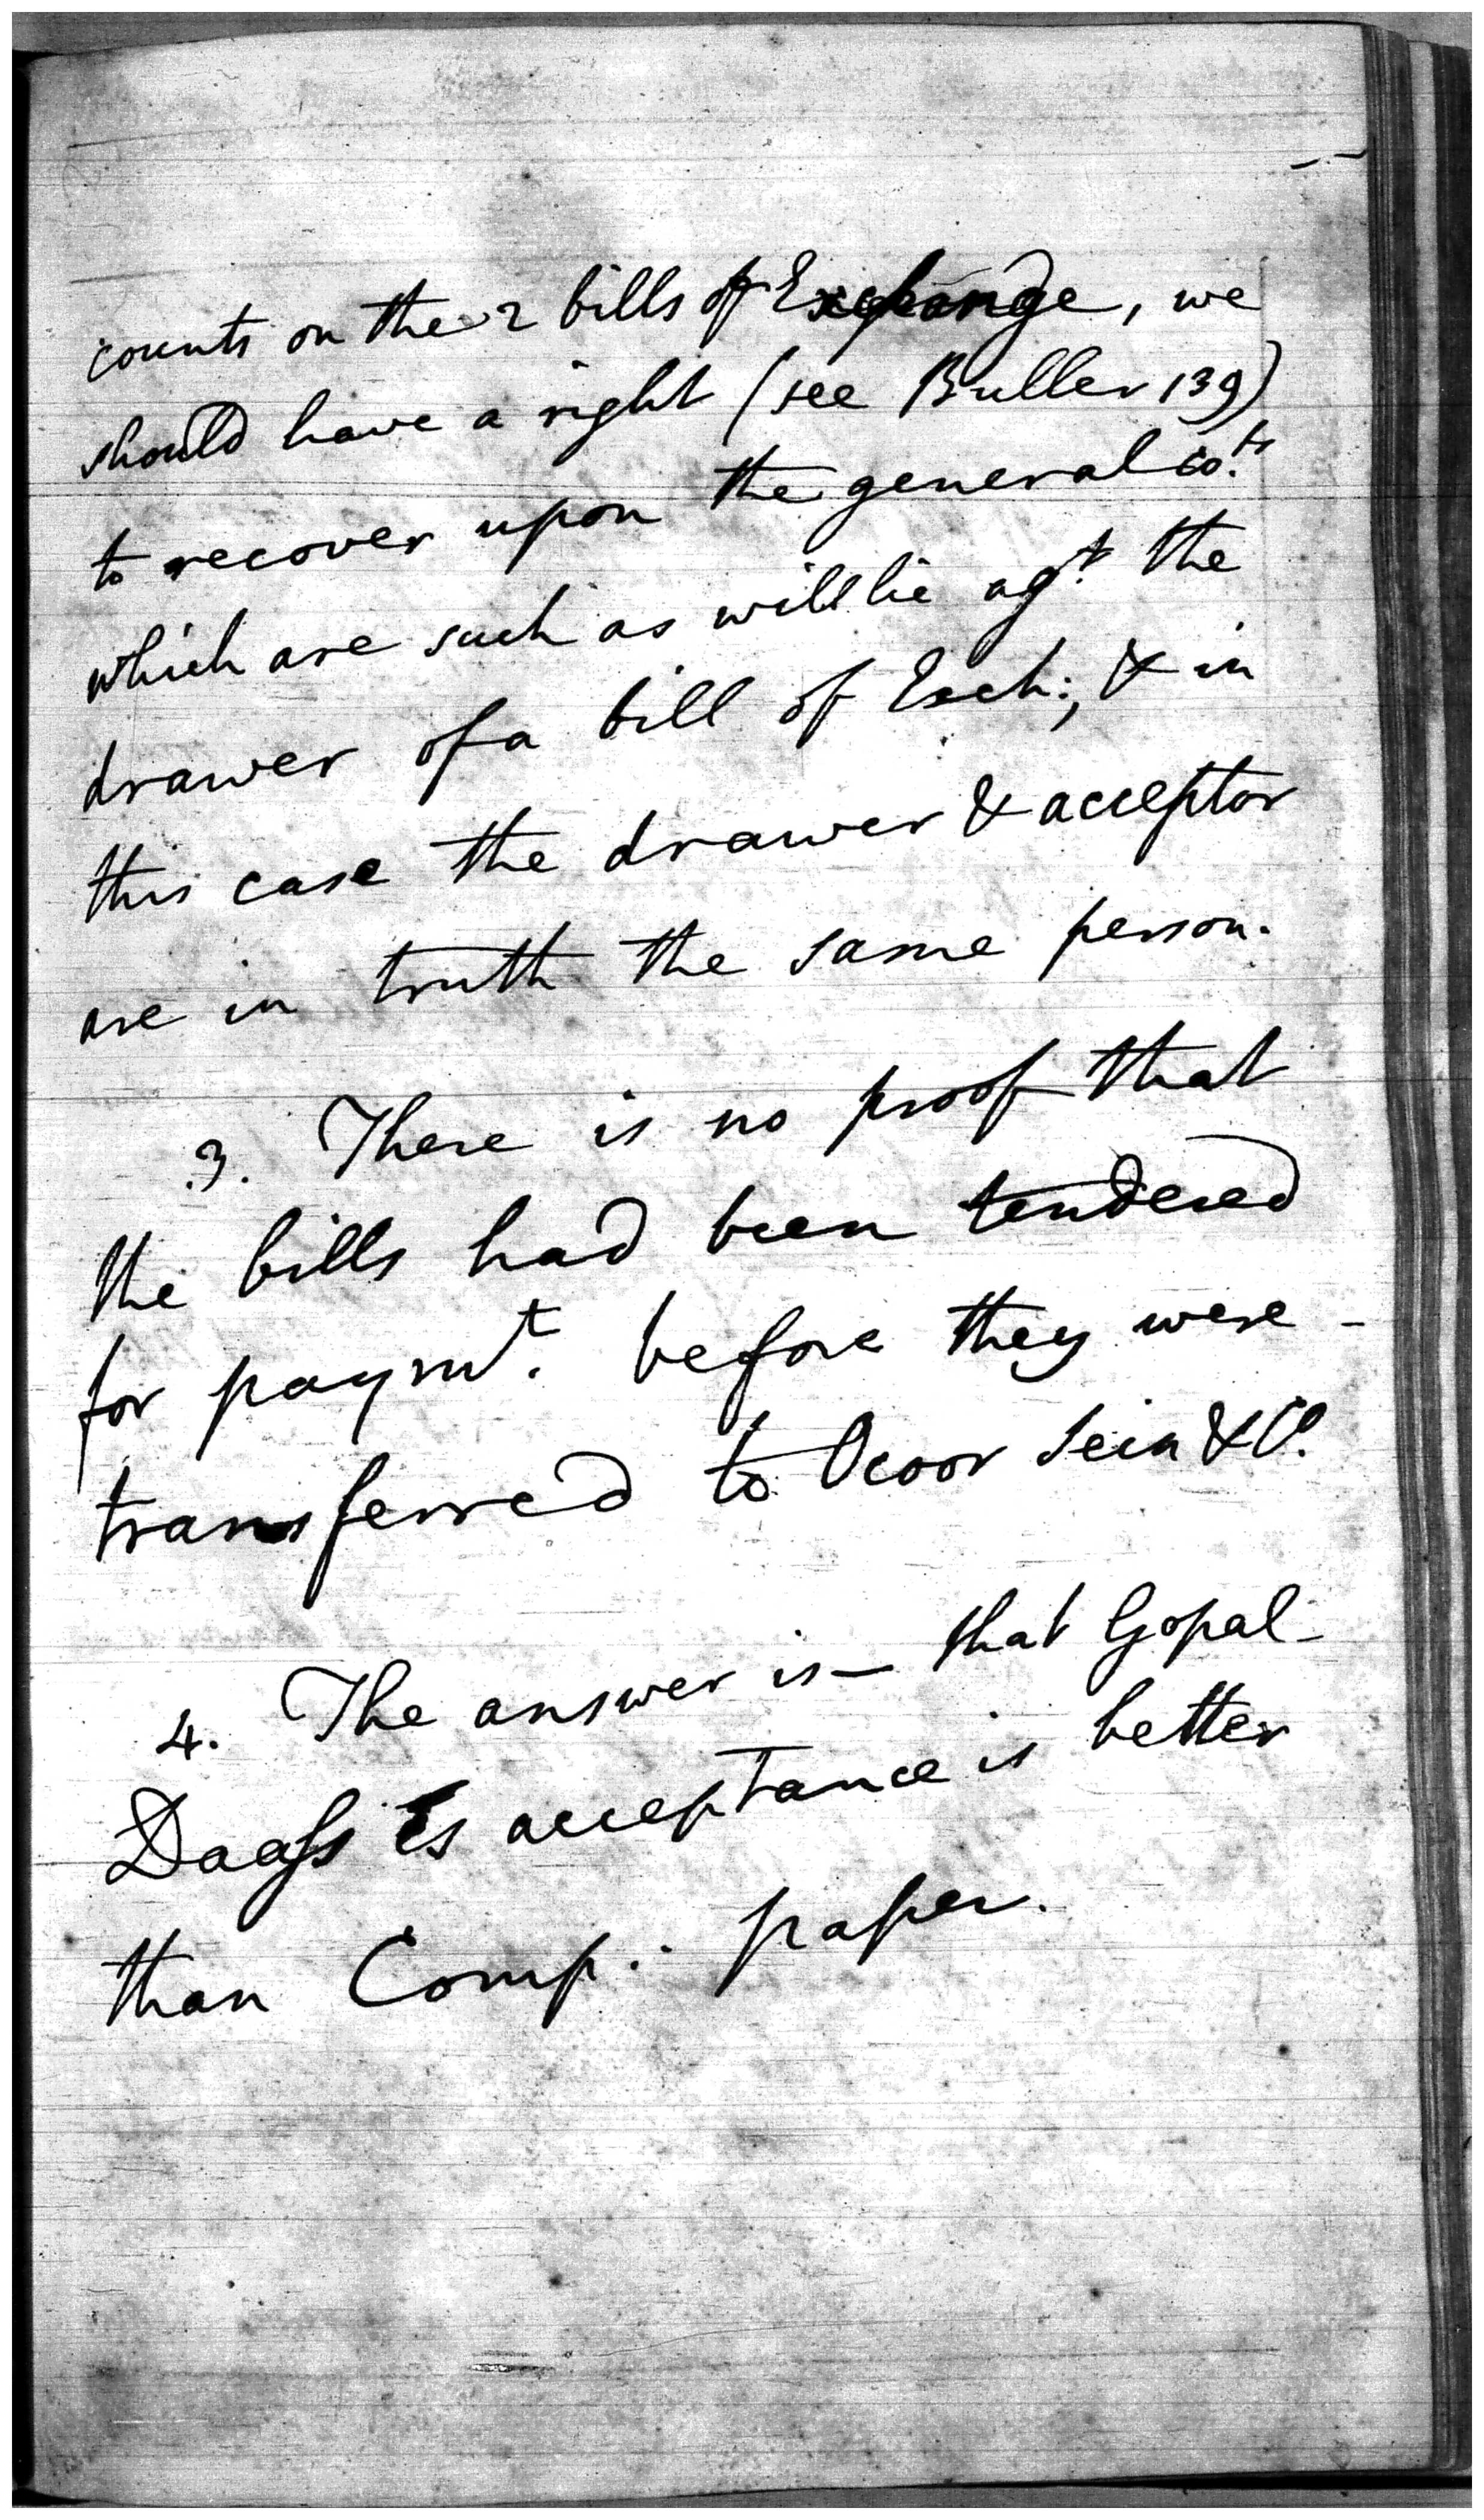 counts on the 2 bills of Exchange, we
should have a right (see Buller 139)
to recover upon the general co.ts
which are such as will lie ag.t the
drawer of a bill of Exch:; & in
this case the drawer & acceptor
are in truth the same person.
3. There is no proof that
the bills had been tendered
for paym.t before they were -
transferred to Ocoor Sein & Co.
4. The answer is — that Gopal-
Daass Es acceptance is better
than Comp. paper.